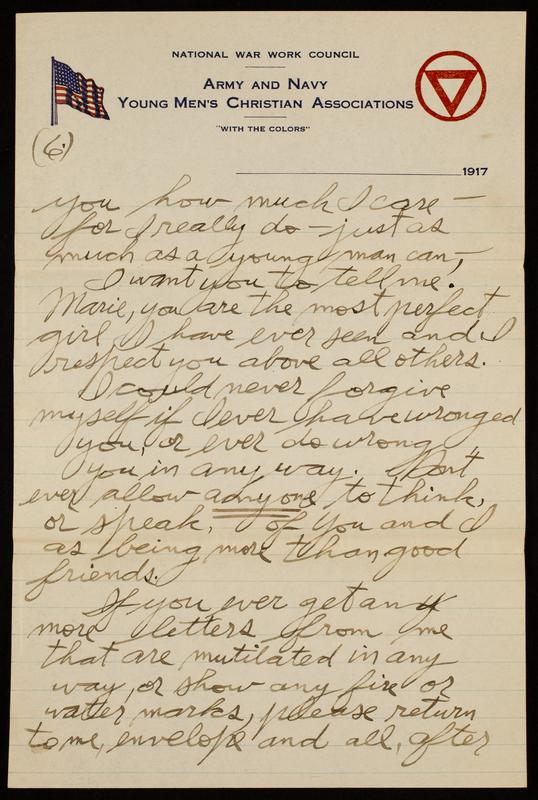 NATIONAL WAR WORK COUNCIL
ARMY AND NAVY
YOUNG MEN'S CHRISTIAN ASSOCIATIONS
"WITH THE COLORS"
(6)
1917
you how much I care —
for I really do — just as
much as a young man can,
I want you to tell me.
Marie, you are the most perfect
girl I have ever seen and I
respect you above all others.
I could never forgive
myself if I ever have wronged
you, or ever do wrong
you in any way. Don't
ever allow anyone to think,
or speak, of you and I
as being more than good
friends.
If you ever get any
more letters from me
that are mutilated in any
way, or show any fire or
water marks, please return
to me, envelope and all, after